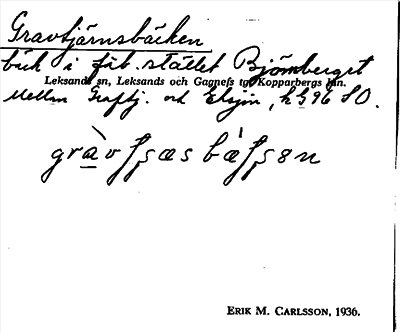 Gravtjärnsbäcken
bäck i fäb.stället Björnberget
Leksands sn, Leksands och Gagnefs tg, Kopparbergs län.
Mellan Graftj. och Elsjön, k 96 SO.
ERIK M. CARLSSON, 1936.